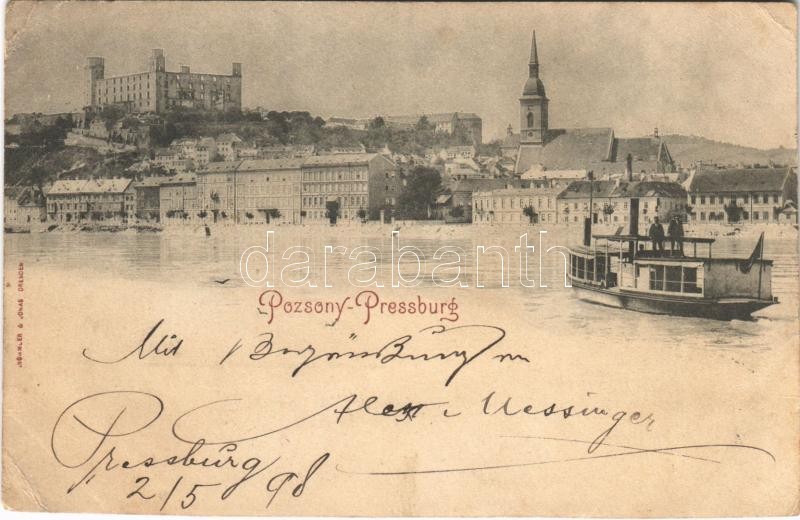 darabanth
Pozsony-Pressburg
RÖMMLER & JONAS DRESDEN
Mit
Alex Messinger
Pressburg
2/5 98